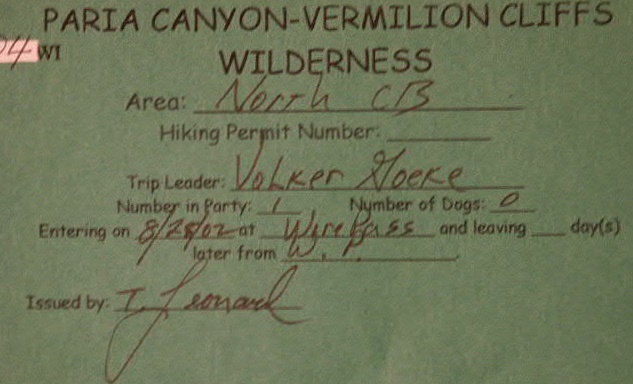 PARIA CANYON-VERMILION CLIFFS
4 WI
WILDERNESS
Area: North CB
Hiking Permit Number:
Trip Leader: Volker Goeke
Number in Party: 1 Number of Dogs: 0
Entering on 8/28/02 at Wire Pass and leaving ____ day(s)
later from W. P.
Issued by: I. Leonard